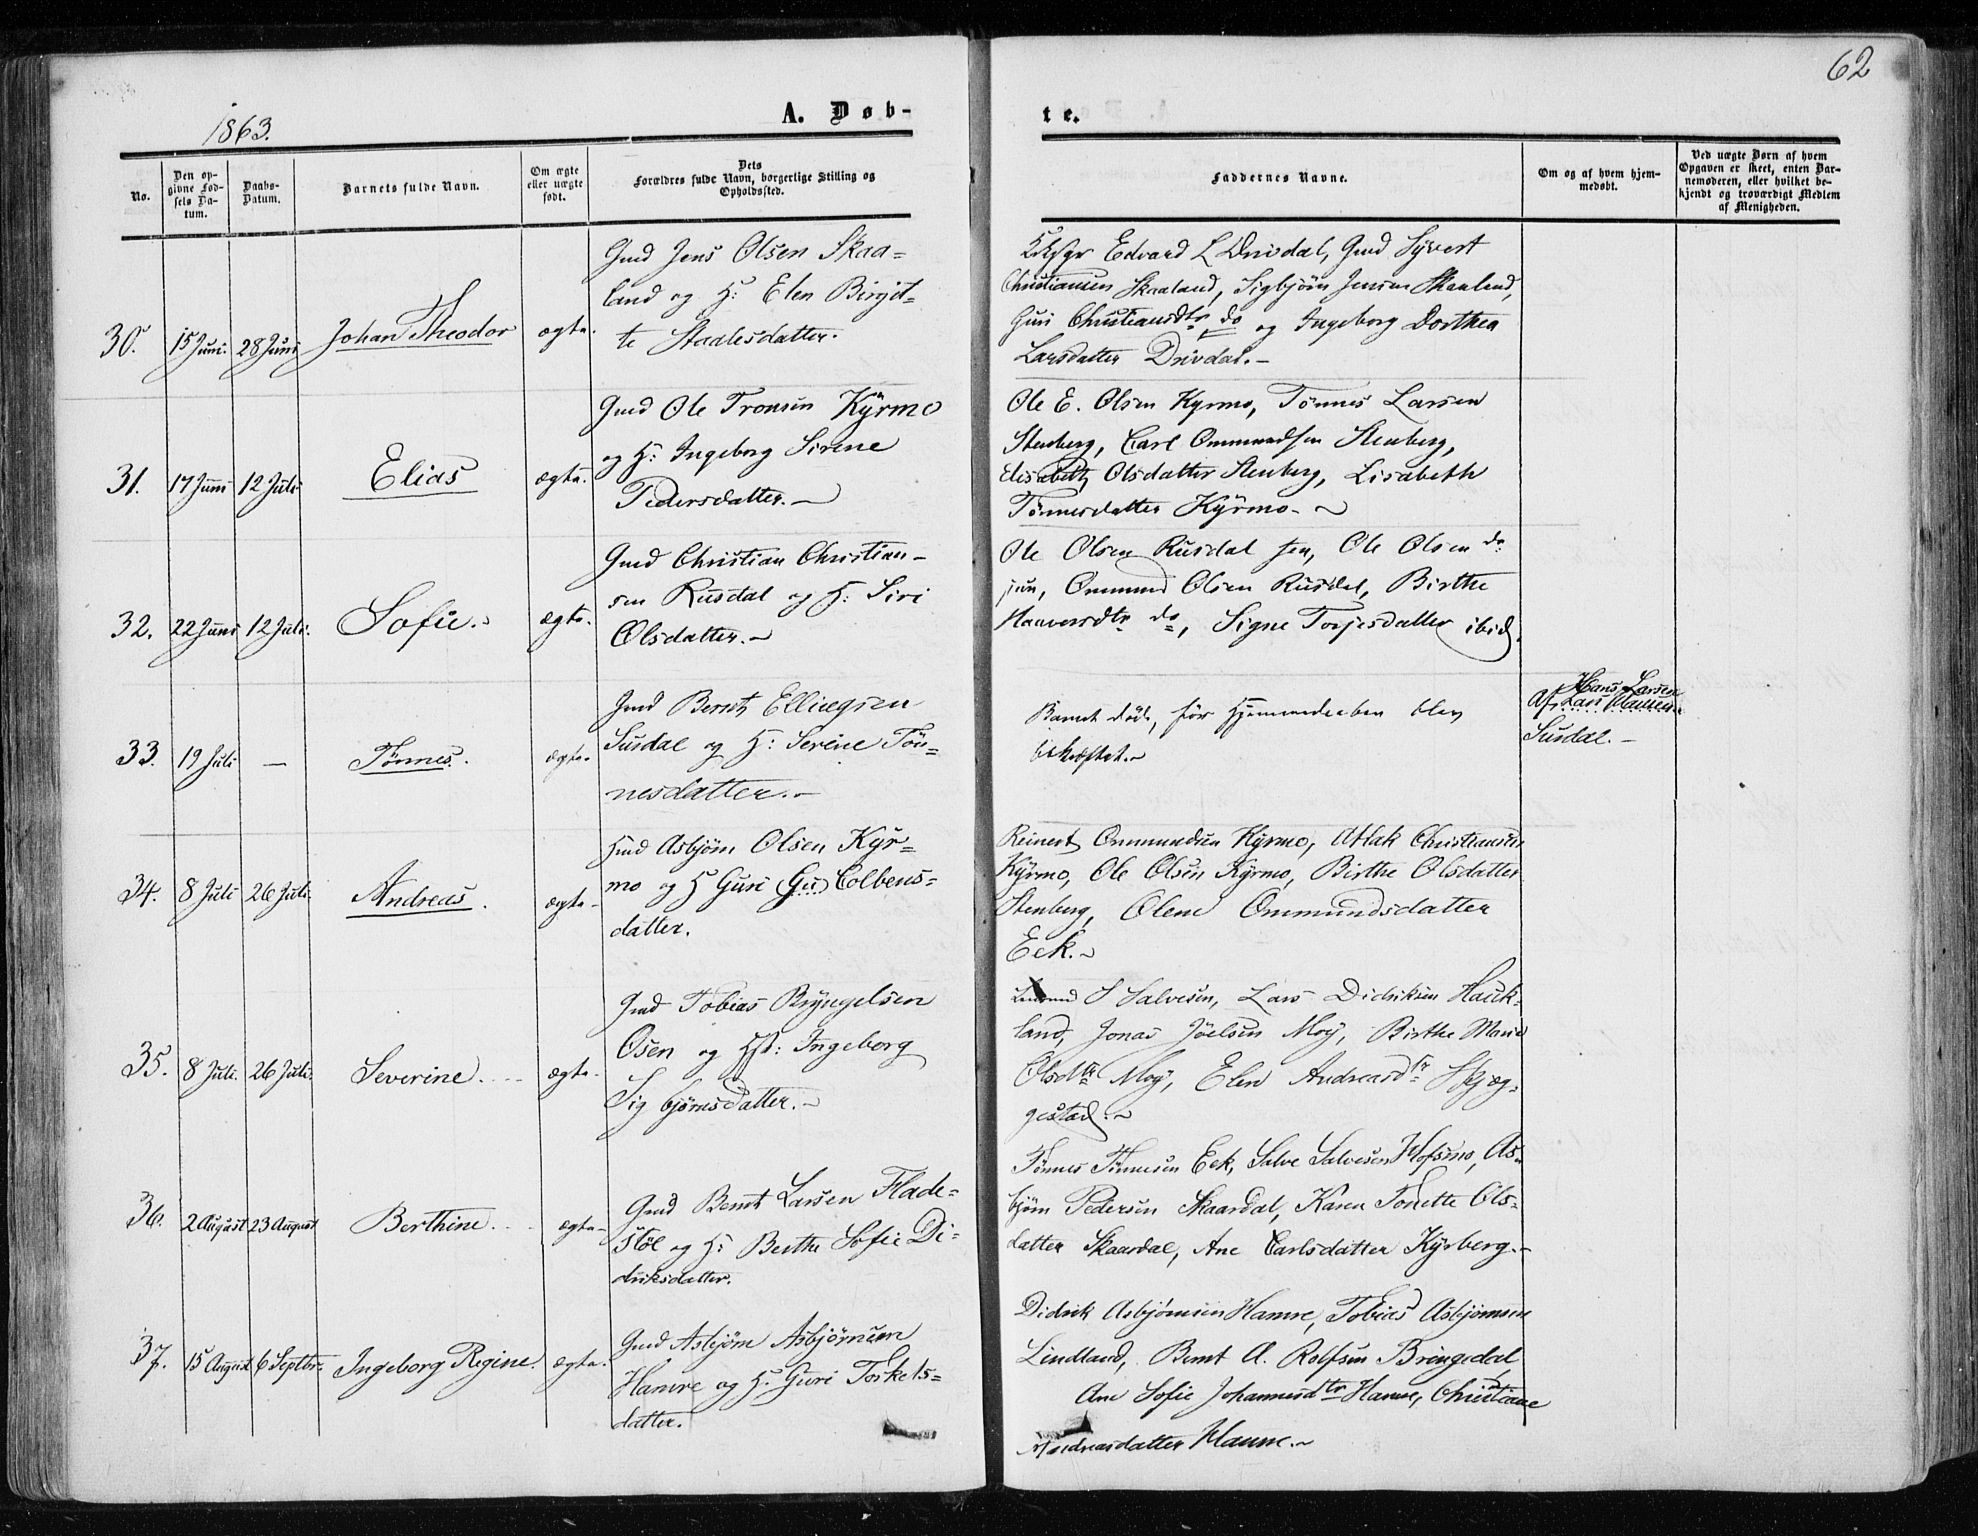 62
1863.
A. Døb-
te.
No.
Den op-
givne Fød-
sels Da-
tum.
Daabs-
Datum.
Barnets fulde Navn.
Om ægte
eller uægte
født.
Dets
Forældres fulde Navn, borgerlige Stilling og
Opholdssted.
Faddernes Navne.
Om og af hvem hjem-
medøbt.
Ved uægte Børn af hvem
Opgaven er skeet, enten Bar-
nemoderen, eller hvilket be-
kjendt og troværdigt Medlem
af Menigheden.
30. 15 Juni. 28 Juni Johan Theodor ægte.
Gmd Jens Olsen Skaa-
land og H: Elen Birgit-
te Staalesdatter.
Edvard L Drivdal, Gmd Syvert
Christiansen Skaaland, Sigbjørn Jensen Skaaland,
Guri Christiansdtr do og Ingeborg Dorthea
Larsdatter Drivdal.-
31. 17 Juni 12 Juli Elias ægte.
Gmd Ole Tronsen Kyrmo
og H: Ingeborg Sirene
Pedersdatter.-
Ole E. Olsen Kyrmo, Tønnes Larsen
Stenberg, Carl Ommundsen Stenberg,
Elisabeth Olsdatter Stenberg, Lisabeth
Tønnesdatter Kyrmo.-
32. 22 Juni 12 Juli. Sofie. ægte.
Gmd Christian Christian-
sen Rusdal og H: Siri
Olsdatter.-
Ole Olsen Rusdal sen, Ole Olsen do
jun, Ommund Olsen Rusdal, Birthe
Haaversdtr do, Signe Torjesdatter ibid.
33. 19 Juli - Tønnes. ægte.
Gmd Bernt Ellingsen
Susdal og H: Serine Tøn-
nesdatter.-
Barnet døde, før Hjemmedaaben blev
bekræftet.-
Hans Larsen
Af Lars Hansen
Susdal.-
34. 8 Juli 26 Juli. Andreas. ægte.
Gmd Asbjørn Olsen Kyr-
mo og H Guri (Gu) Colbens-
datter.
Reinert Ommundsen Kyrmo, Atlak Christiansen
Kyrmo, Ole Olsen Kyrmo, Birthe Olsdatter
Stenberg, Olene Ommundsdatter
Eek.-
35. 8 Juli. 26 Juli. Severine. ægte.
Gmd Tobias Bryngelsen
Osen og Hst: Ingeborg
Sigbjørnsdatter.-
S Salvesen, Lars Didriksen Hauk-
land, Jonas Joelsen Moy, Birthe Marie
Olsdtr Moy, Elen Andreasdtr Skjæg-
gestad.-
36. 2 August 23 August Berthine. ægte.
Gmd Bernt Larsen Flade-
støl og H: Berthe Sofie Di-
driksdatter.
Tønnes Tønnesen Eek, Salve Salvesen Hofsmo, As-
bjørn Pedersen Skaardal, Karen Tonette Ols-
datter Skaardal, Ane Carlsdatter Kyrberg.-
37. 15 August 6 Septbr. Ingeborg Regine. ægte.
Gmd Asbjørn Asbjørnsen
Hamre og H. Guri Torkels-
datter.
Didrik Asbjørnsen Hamre, Tobias Asbjørnsen
Lindland, Bernt A. Rolfsen Bringedal,
Ane Sofie Johannesdtr Hamre, Christiane
Andreasdatter Hamre.-